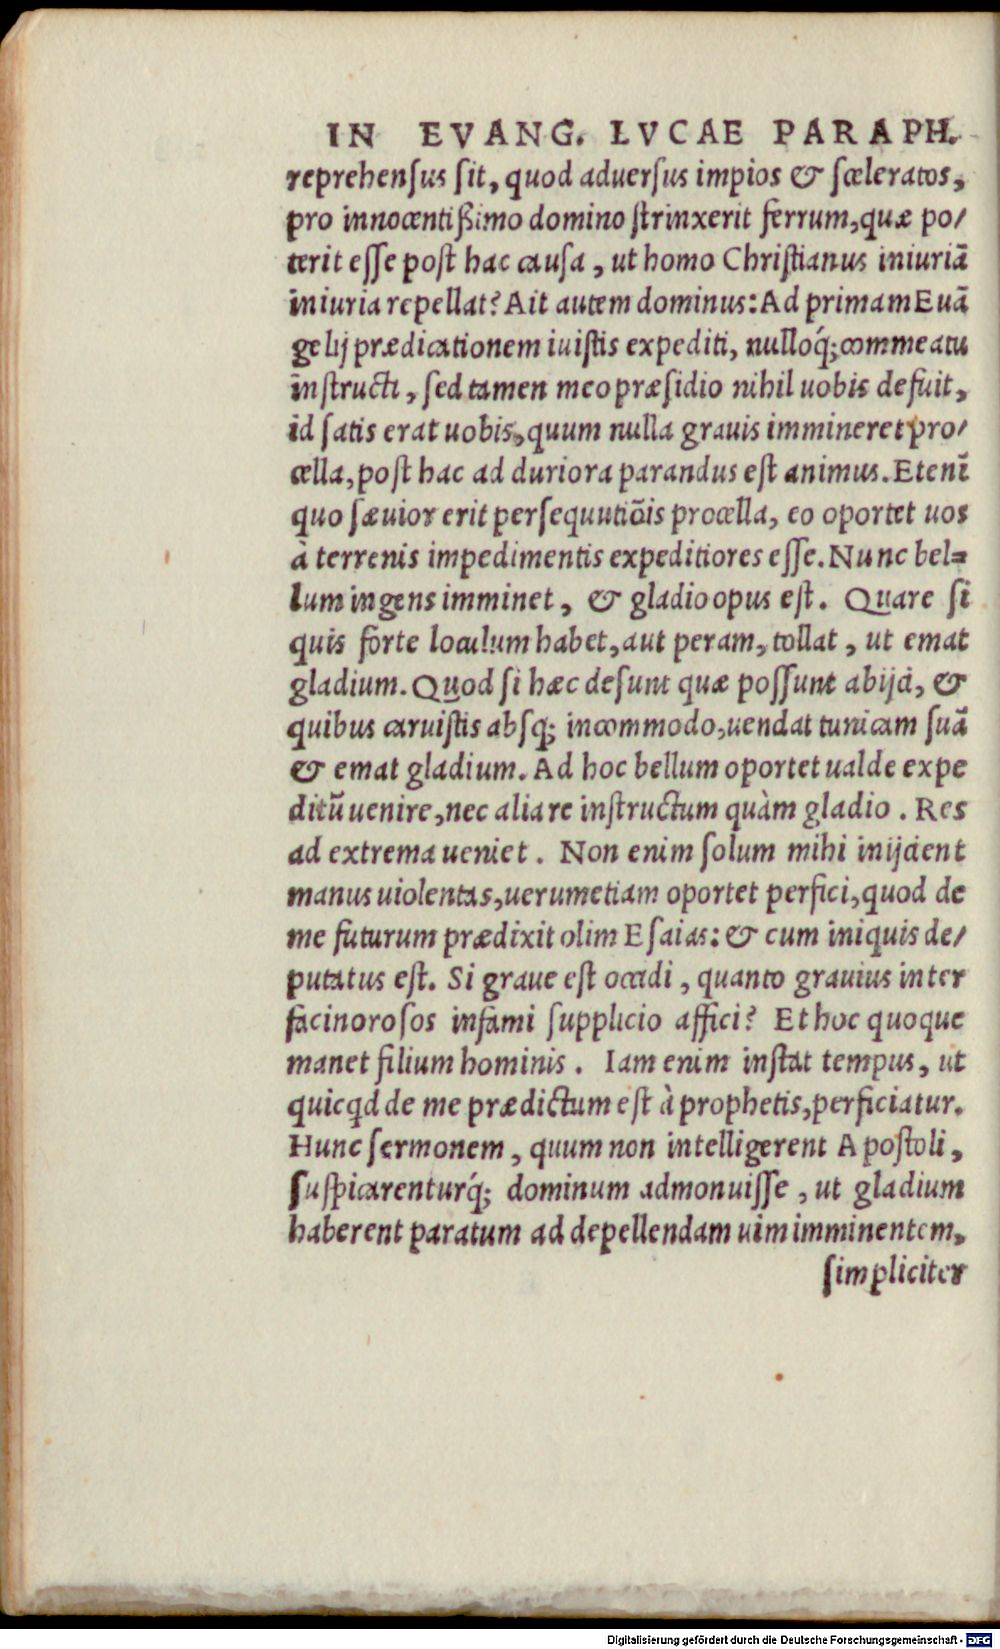 IN EVANG. LVCAE PARAPH.
reprehensus sit, quod aduersus impios & sceleratos,
pro innocentißimo domino strinxerit ferrum, quæ po/
terit esse post hac causa, ut homo Christianus iniuriā
iniuria repellat? Ait autem dominus: Ad primam Euā
gelij prædicationem iuistis expediti, nulloq́; commeatu
instructi, sed tamen meo præsidio nihil uobis defuit,
id satis erat uobis, quum nulla grauis immineret pro/
cella, post hac ad duriora parandus est animus. Etenī
quo sæuior erit persequutiōis procella, eo oportet uos
à terrenis impedimentis expeditiores esse. Nunc bel=
lum ingens imminet, & gladio opus est. Quare si
quis forte loculum habet, aut peram, tollat, ut emat
gladium. Quod si hæc desunt quæ possunt abijci, &
quibus caruistis absq; incommodo, uendat tunicam suā
& emat gladium. Ad hoc bellum oportet ualde expe
ditū uenire, nec alia re instructum quàm gladio. Res
ad extrema ueniet. Non enim solum mihi inijcient
manus uiolentas, uerumetiam oportet perfici, quod de
me futurum prædixit olim Esaias: & cum iniquis de/
putatus est. Si graue est occidi, quanto grauius inter
facinorosos infami supplicio affici? Et hoc quoque
manet filium hominis. Iam enim instat tempus, ut
quicqd de me prædictum est à prophetis, perficiatur.
Hunc sermonem, quum non intelligerent Apostoli,
suspicarenturq́; dominum admonuisse, ut gladium
haberent paratum ad depellendam uim imminentem,
simpliciter
Digitalisierung gefördert durch die Deutsche Forschungsgemeinschaft - DFG